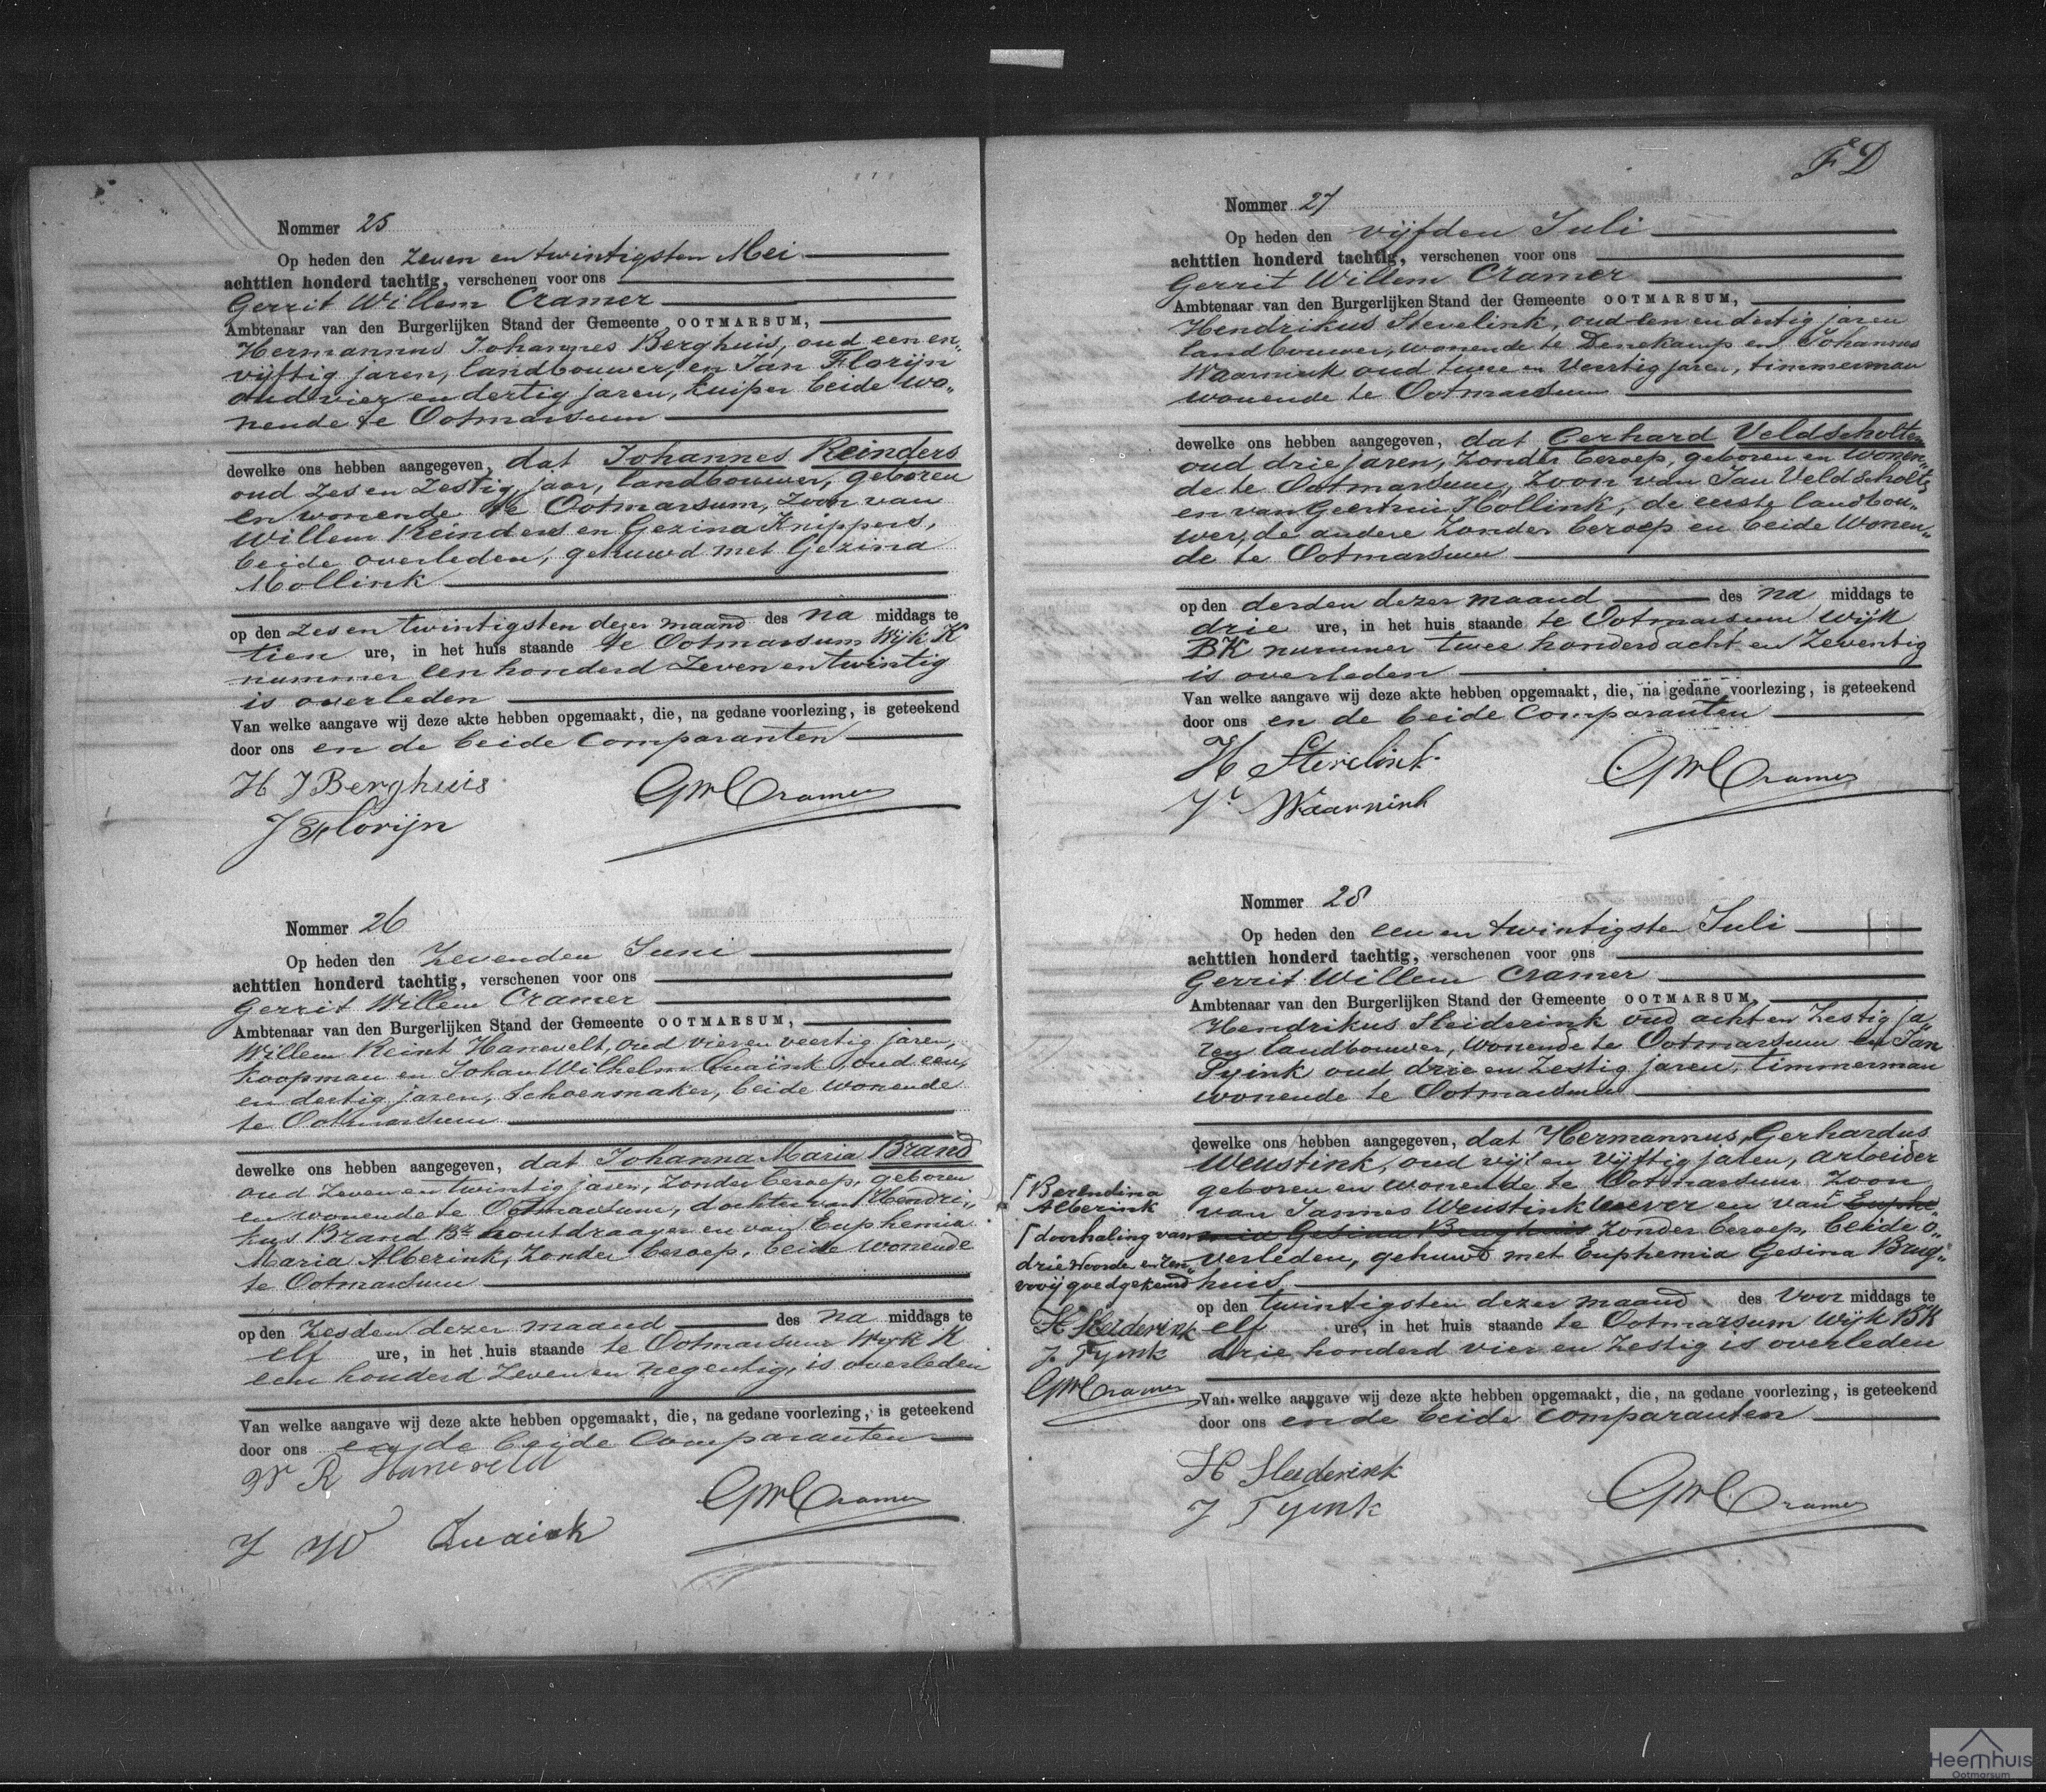 Nommer 25
Op heden den zeven en twintigsten Mei
achttien honderd tachtig, verschenen voor ons
Gerrit Willem Cramer
Ambtenaar van den Burgerlijken Stand der Gemeente OOTMARSUM,
Hermannus Johannes Berghuis, oud een en
vijftig jaren, landbouwer, en Jan Florijn
oud vier en dertig jaren, kuiper beide wo„
nende te Ootmarsum
dewelke ons hebben aangegeven, dat Johannes Reinders
oud zes en zestig jaar, landbouwer, geboren
en wonende te Ootmarsum, zoon van
Willem Reinders en Gezina Knippers,
beide overleden, gehuwd met Gezina
Mollink
op den zes en twintigsten dezer maand des na middags te
tien ure, in het huis staande te Ootmarsum Wijk K
nummer een honderd zeven en twintig
is overleden
Van welke aangave wij deze akte hebben opgemaakt, die, na gedane voorlezing, is geteekend
door ons en de beide comparanten
H J Berghuis
GWCramer
J Florijn
Nommer 26
Op heden den zevenden Juni
achttien honderd tachtig, verschenen voor ons
Gerrit Willem Cramer
Ambtenaar van den Burgerlijken Stand der Gemeente OOTMARSUM,
Willem Reint Hanevelt, oud vier en veertig jaren,
koopman en Johan Wilhelm Quaink, oud een,
en dertig jaren, schoenmaker, beide wonende
te Ootmarsum
dewelke ons hebben aangegeven, dat Johanna Maria Brand
oud zeven en twintig jaren, zonder beroep, geboren
en wonende te Ootmarsum, dochter van Hendri„
kus Brand Bz houtdraager en van Euphemia
Maria Alberink, zonder beroep, beide wonende
te Ootmarsum
op den zesden dezer maand des na middags te
elf ure, in het huis staande te Ootmarsum Wijk K
een honderd zeven en negentig, is overleden
Van welke aangave wij deze akte hebben opgemaakt, die, na gedane voorlezing, is geteekend
door ons en de beide Comparanten
W R Haneveld
GWCramer
J W Quaink
F D
Nommer 27
Op heden den vijfden Juli
achttien honderd tachtig, verschenen voor ons
Gerrit Willem Cramer
Ambtenaar van den Burgerlijken Stand der Gemeente OOTMARSUM,
Hendrikus Stevelink, oud een en dertig jaren
landbouwer, wonende te Denekamp en Johannes
Waarnink oud twee en veertig jaren, timmerman
wonende te Ootmarsum
dewelke ons hebben aangegeven, dat Gerhard Veldscholten
oud drie jaren, zonder beroep, geboren en wonen„
de te Ootmarsum, zoon van Jan Veldscholte
en van Geertrui Hollink, de eerste landbou„
wer, de andere zonder beroep en beide wonen„
de te Ootmarsum
op den derden dezer maand des na middags te
drie ure, in het huis staande te Ootmarsum Wijk
BK nummer twee honderd acht en zeventig
is overleden
Van welke aangave wij deze akte hebben opgemaakt, die, na gedane voorlezing, is geteekend
door ons en de beide comparanten
H Stevelink
GWCramer
J Waarnink
Nommer 28
Op heden den een en twintigsten Juli
achttien honderd tachtig, verschenen voor ons
Gerrit Willem Cramer
Ambtenaar van den Burgerlijken Stand der Gemeente OOTMARSUM,
Hendrikus Sleiderink oud acht en zestig ja
ren landbouwer, wonende te Ootmarsum en Jan
Tyink oud drie en zestig jaren, timmerman
wonende te Ootmarsum
dewelke ons hebben aangegeven, dat Hermannus Gerhardus
Weustink, oud vijf en vijftig jaren, arbeider
geboren en wonende te Ootmarsum zoon
van Jannes Weustink wever en van Euphe„
mia Gesina Brughuis zonder beroep, beide o„
verleden, gehuwd met Euphemia Gesina Brug„
huis
op den twintigsten dezer maand des voor middags te
elf ure, in het huis staande te Ootmarsum Wijk BK
drie honderd vier en zestig is overleden
Van welke aangave wij deze akte hebben opgemaakt, die, na gedane voorlezing, is geteekend
door ons en de beide comparanten
H Sleiderink
GWCramer
J Tyink
Berendina
Alberink
doorhaling van
drie woorden en ren„
vooij goedgekeurd
H Sleiderink
J. Tyink
GWCramer
Heemhuis
Ootmarsum